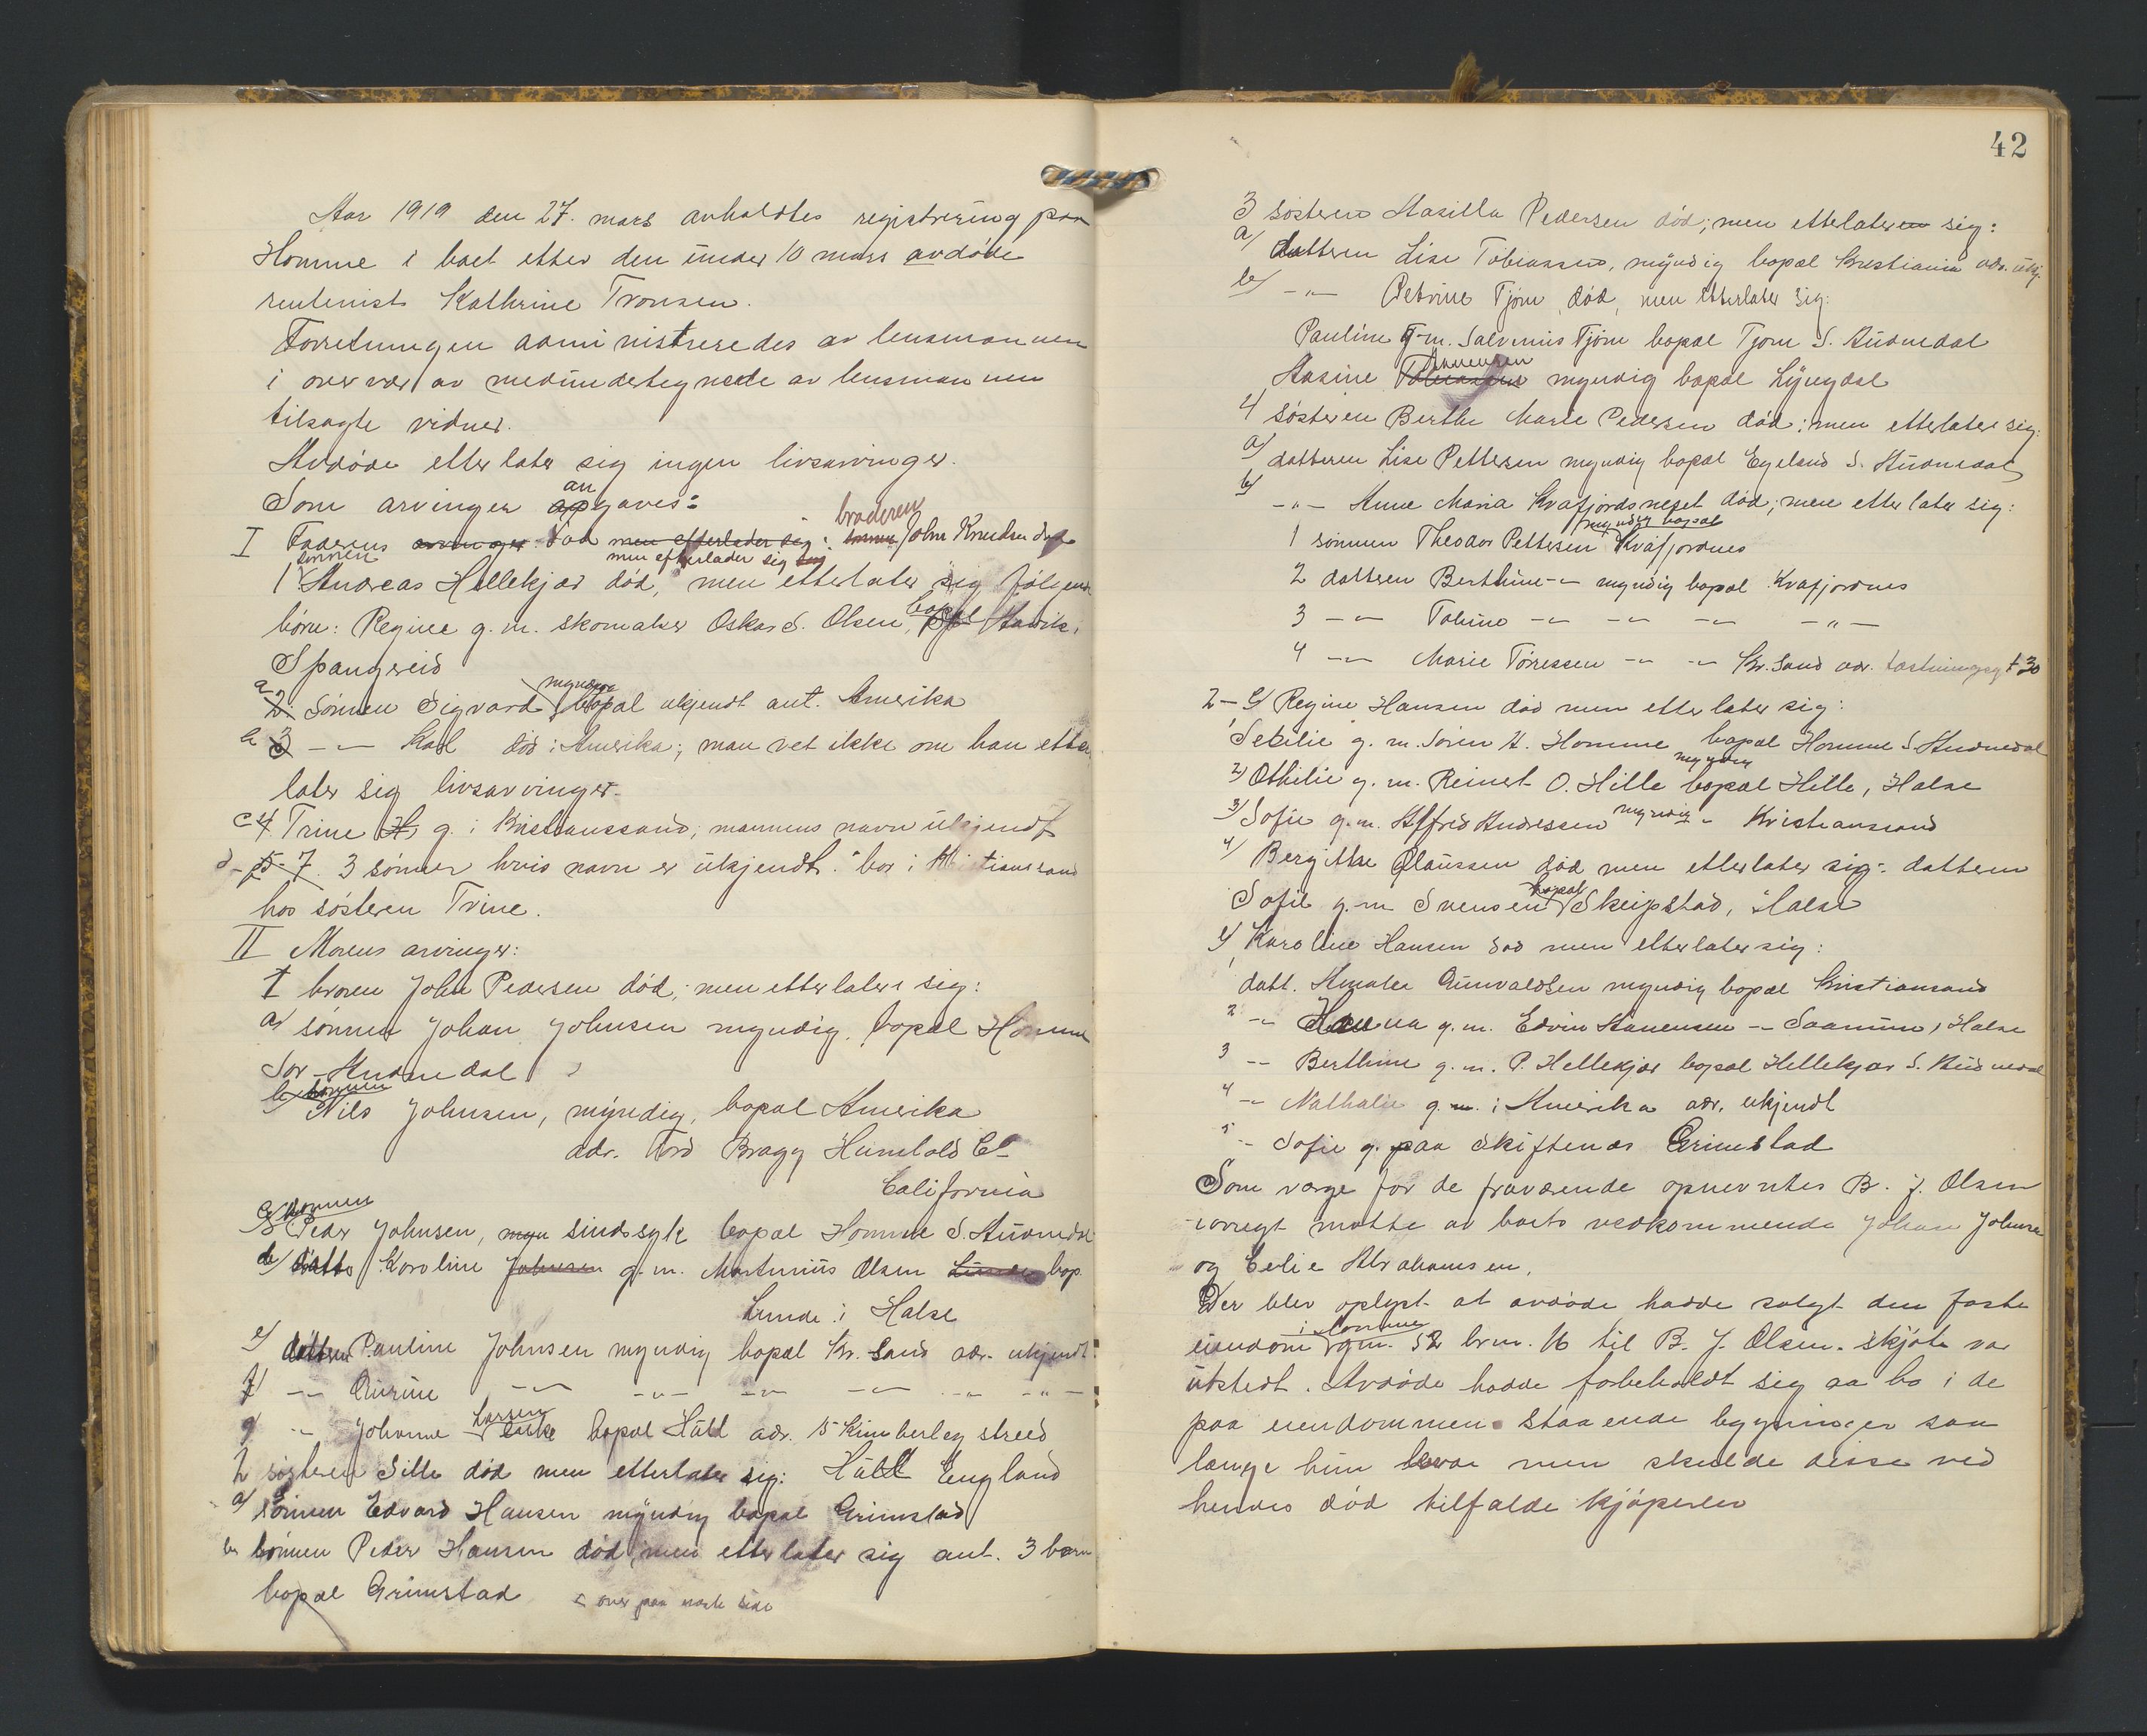 Aar 1919 den 27. mars avholdtes registrering paa
Homme i boet etter den under 10 mars avdøde
rentenist Kathrine Tronsen.
Forretningen administreredes av lensmannen
i overvær av medundertegnede av lensmannen
tilsagte vidner.
Avdøde etterlater sig ingen livsarvinger.
Som arvinger opgaves:
an
I Faderens arvinger. død men efterlader sig: sønnen John Knudsen død
broderen
men efterlader sig
sønnen
1 Andreas Hellekjær død, men etterlater sig følgende
børn: Regine g. m. skomaker Oskar S. Olsen, bopæl
Spangreid
a 2. Sønnen Sigvard myndig bopæl ukjendt ant. Amerika
b 3 -"- Karl død i Amerika; man vet ikke om han etter
later sig livsarvinger.
c 4. Trine H. g. i Kristianssand, mannens navn ukjendt
d - 5-7. 3 sønner hvis navn er ukjendt. bor i Kristianssand
hos søsteren Trine.
II Morens arvinger:
1 broren John Pedersen død, men etterlater sig:
a/ sønnen Johan Johnsen myndig. bopæl Homme
Sør-Audnedal
b/ sønnen
Nils Johnsen, myndig, bopæl Amerika
adr. Ford Bragg Humbold Co
California
c/ sønnen
Peder Johnsen, myn sindssyk bopæl Homme S. Audnedal
d/ datter Karoline Johnsen g. m. Martinius Olsen Lunde bop.
Lunde i Halse
e/ datteren Pauline Johnsen myndig bopæl Kr. Sand adr. ukjendt
f/ -"- -"- -"- -"- -"- -"- -"-
g/ -"- Johanne Larsen enke bopæl Hull adr. 15 Kimberley streed
2 søsteren Sille død men etterlater sig: Hull England
a/ sønnen Edvard Hansen myndig bopæl Grimstad
b/ sønnen Peder Hansen død, men etterlater sig ant. 3 barn
bopæl Grimstad c over paa næste side
42
3 søsteren Asilla Pedersen død; men etterlater sig:
a/ datteren Lise Tobiassen, myndig bopæl Kristiania adr. ukj.
b/ -"- Petrine Tjøm, død, men etterlater sig:
Pauline g. m. Salvenius Tjøm bopæl Tjøm S. Audnedal
Hanensen
Asine Tobiassen myndig bopæl Lyngdal
4 søsteren Berthe Marie Pedersen død; men etterlater sig:
a/ datteren Lise Pettersen myndig bopæl Egeland S. Audnedal
b/ -"- Anne Maria Kvafjordsneset død; men etterlater sig:
myndig bopæl
1 sønnen Theodor Pettersen Kvafjordnes
2 datteren Berthine -"- myndig bopæl Kvafjordnes
3 -"- Tobine -"- -"- -"- -"-
4 -"- Marie Tørressen -"- -"- Kr. Sand adr. Festningsgt 30
2 - c/ Regine Hansen død men etterlater sig:
1 Sesilie g. m. Søren A. Homme bopæl Homme S. Audnedal
myndig
2) Othilie g. m. Reinert O. Hille bopæl Hille, Halse
3) Sofie g. m. Alfred Andressen myndig -"- Kristianssand
4) Bergitte Claussen død men etterlater sig: datteren
Sofie g. m Svensen bopæl Skeipstad, Halse
Karoline Hansen død men etterlater sig:
1 datt. Amalie Gunvaldsen myndig bopæl Kristiansand
2 -"- g. m. Edvin Hanensen -"- Saanum, Halse
3 -"- Berthine g. m. P. Hellekjær bopæl Hellekjær S. Audnedal
4 -"- Nathalie g. m. i Amerika adr. ukjendt
5 -"- Sofie g. paa Skiftenæs Grimstad
Som værge for de fraværende opnevntes B. J. Olsen
iøvrigt møtte av boets vedkommende Johan Johnsen
og Celie Abrahamsen.
Der blev oplyst at avdøde hadde solgt den faste
eiendom i Homme gnr. 52 brn. 16 til B. J. Olsen. skjøte var
utstedt. Avdøde hadde forbeholdt sig aa bo i de
paa eiendommen staaende bygninger saa
længe hun levde men skulde disse ved
hendes død tilfalde kjøperen